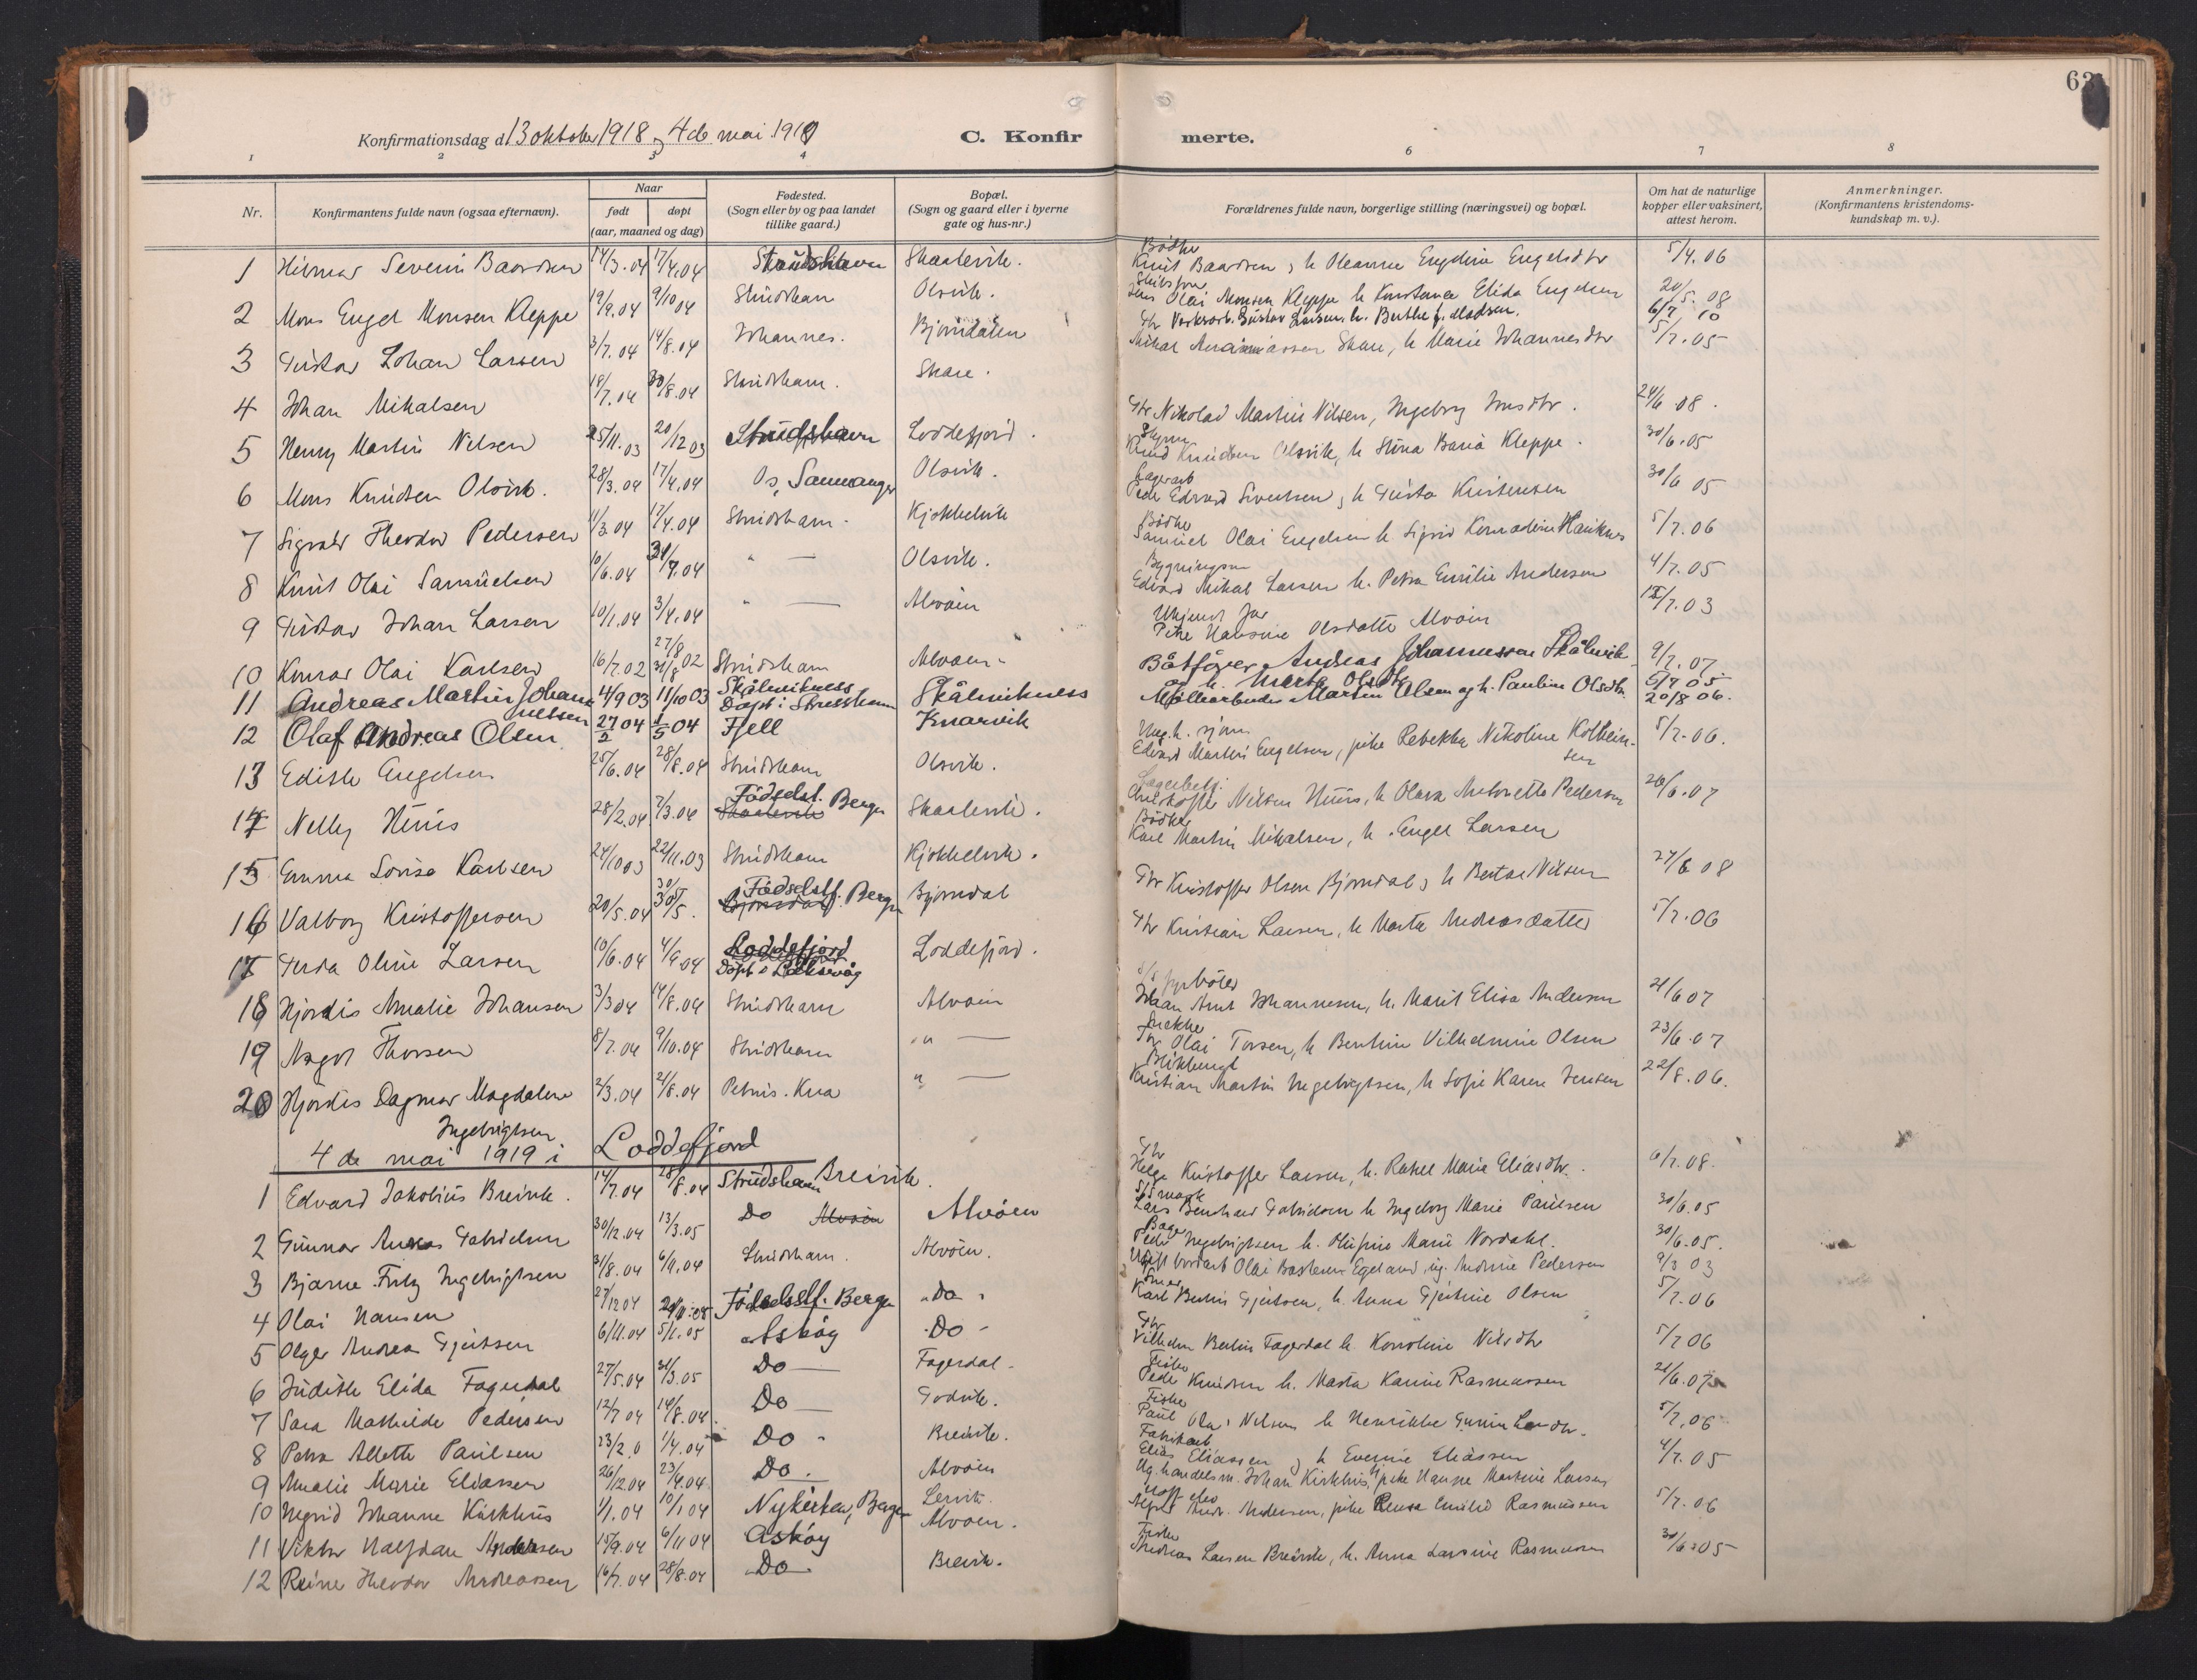 63
Konfirmationsdag d. 13 oktober 1918 og 4de mai 1919
C. Konfirmerte.
1 2 3 4 6 7 8
Nr. Konfirmantens fulde navn (ogsaa efternavn). Naar født døpt (aar, maaned og dag) Fødested. (Sogn eller by og paa landet tillike gaard.) Bopæl. (Sogn og gaard eller i byerne gate og hus-nr.) Forældrenes fulde navn, borgerlige stilling (næringsvei) og bopæl. Om hat de naturlige kopper eller vaksinert, attest herom. Anmerkninger. (Konfirmantens kristendoms-kundskap m. v.).
1 Hilmar Severin Baardsen 14/3.04 17/4.04 Strudshavn Skaalevik. Bødker Knut Baardsen, h Oleanna Engeline Engelsdtr 5/4.06
2 Mons Engel Monsen Kleppe 19/9.04 9/10 04 Strudsham Olsvik. Jens Olai Monsen Kleppe h Konstance Elida Engelsen 20/5.08
3 Gustav Johan Larsen 3/7.04 14/8.04 Johannes. Bjørndalen Gbr Verksarb. Gustav Larsen h. Berthe J. Madsen. 6/7 10
4 Johan Mikalsen 18/7.04 30/8.04 Strudsham. Skare. Mikal Skare, h Marie Johannesdtr 5/7.05
5 Henry Martin Nilsen 25/11.03 20/12 03 Strudshavn Loddefjord. Gbr Nikolad Martin Nilsen, Ingeborg Jensdtr. 24/6 08.
6 Mons Knudsen Olsvik. 28/3.04 17/4.04 Os, Samnanger Olsvik. Knud Knudsen Olsvik, h Stina Kleppe. 30/6.05
7 Sigvald Theodor Pedersen 11/3 04 17/4.04 Strudsham. Kjøkkelvik Lagerarb Peder Edvard Sivertsen, h Gusta Kristensen 30/6 05
8 Knut Olai Samuelsen 10/6.04 31/7.04 " — Olsvik. Bødker Samuel Olai Engelsen h. Sigrid Konradine Hauknes 5/7.06
9 Gustav Johan Larsen 10/1.04 3/4.04 " — Alvøen Bygningssn Edvard Mikal Larsen h. Petra Emilie Andersen 4/7.05
10 Konrad Olai Karlsen 16/7.02 27/8 31/8 02 Strudsham Alvøen. Ukjendt far Pike Hansine Olsdatter Alvøen 15/7.03
11 Andreas Martin Johannessen 4/9 03 11/10 03 Skålevikness Døpt i Strusshamn Skålevikness Båtfører Andreas Johannessen Skålevik og h. Merta Olsdtr 9/7.07
12 Olaf Andreas Olsen 27/2 04 1/5 04 Fjell Knarvik Møllearbeider Martin Olsen og h. Pauline Olsdtr. 5/7 05 20/8 06.
13 Edith Engelsen 25/6.04 28/8.04 Strudsham Olsvik. Ung.k. sjøm Edvard Martin Engelsen, pike Rebekka Nikoline Kolbeinsen 5/7.06.
14 Nelly Huus 28/2.04 7/3.04 Fødselst. Bergen Skaalevik Skaalevik. Lagerbetj. Kristoffer Nilsen Huus, h Olava Antonette Pedersen 26/6.07
15 Emma Lovisa Karlsen 24/10 03 22/11.03 Strudsham Kjøkkelvik. Bødker Karl Martin Mikalsen, h. Engel Larsen
16 Valborg Kristoffersen 20/5.04 30/5. Fødselsst. Bergen Bjørndal Bjørndal Gbr Kristoffer Olsen Bjørndal, h Bertae Nilsen 27/6 08
17 Gerda Oline Larsen 10/6.04 4/9 04 Loddefjord Døpt i Laksevåg Loddefjord. Gbr Kristian Larsen, h Marta Andreasdatter 5/7.06
18 Hjørdis Amalie Johansen 3/3 04 14/8.04 Strudsham Alvøen S/S fyrbøter Johan Arnt Johannesen, h. Marit Elisa Andersen 21/6 07
19 Asgot Thorsen 8/7.04 9/10.04 Strudsham " — Snekker Olai Torsen, h Bentine Vilhelmine Olsen 23/6.07
20 Hjørdis Dagmar Magdalene Ingebrigtsen 2/3.04 21/8.04 Petrus. Kra " — Kristian Martin Ingebrigtsen, h Sofie Karen Jensen 22/8.06.
4 de mai 1919 i Loddefjord
1 Edvard Jakobius Breivik. 14/7.04 28/8.04 Strudsham Breivik. Gbr Helge Kristoffer Larsen, h. Rakel Marie Eliasdtr. 6/7.08.
2 Gunnar Andreas Gabrielsen 30/12.04 13/3.05 Do Alvøen Alvøen Lars Bernhard Gabrielsen h Ingeborg Marie Paulsen 30/6.05
3 Bjarne Fritz Ingebrigtsen 31/8.04 6/9.04 Strudsham. Alvøen. Bager Peder Ingebrigtsen h. Olufine Marie Nordahl. 30/6.05.
4 Olai Hansen 27/12 04 Fødselsst. Bergen "Do" Olai Egeland, ug. Andrine Pedersen 9/3 03
5 Olger Andrea Gjertsen 6/11.04 5/1.05 Askøy Do Karl Bertin Gjertsen, h. Anna Gjertine Olsen 5/7.06
6 Judith Elida Fagerdal 27/5.04 31/3.05 Do Fagerdal. Gbr Vilhelm Berlin Fagerdal h Konoline Nilsdtr 5/7 06
7 Sara Mathilde Pedersen 12/7 04 14/8.04. Do Godvik. Fisker Peder Knudsen h. Marta Karine Rasmussen 21/6.07
8 Petra Alette Paulsen 23/2.0 1/4.04 Do Breivik. Fisker Paul Olai Nilsen h Henrikke 5/7.06
9 Amalie Marie Eliassen 26/12.04 23/4.04. Do. Alvøen Fabrikarb Elias Eliassen, h Evensine Eliassen 4/7.05
10 Ingrid Johanne Kirkhus 1/1.04 10/1 04 Nykirken, Bergen Lervik. Ug. handelsm. Johan Kirkhus, pike Hanne Martine Larsen
11 Viktor Halfdan Andersen 15/9.04 6/11 04 Askøy Alvøen. Alfred Andr. Andersen, pike Rensa Emilie Rasmussen 5/7.06
12 Reine Theodor Andreassen 16/7.04 28/8.04 Do Breivik. Fisker Andreas Larsen Breivik, h. Anna Lavsine Rasmussen 30/6 05